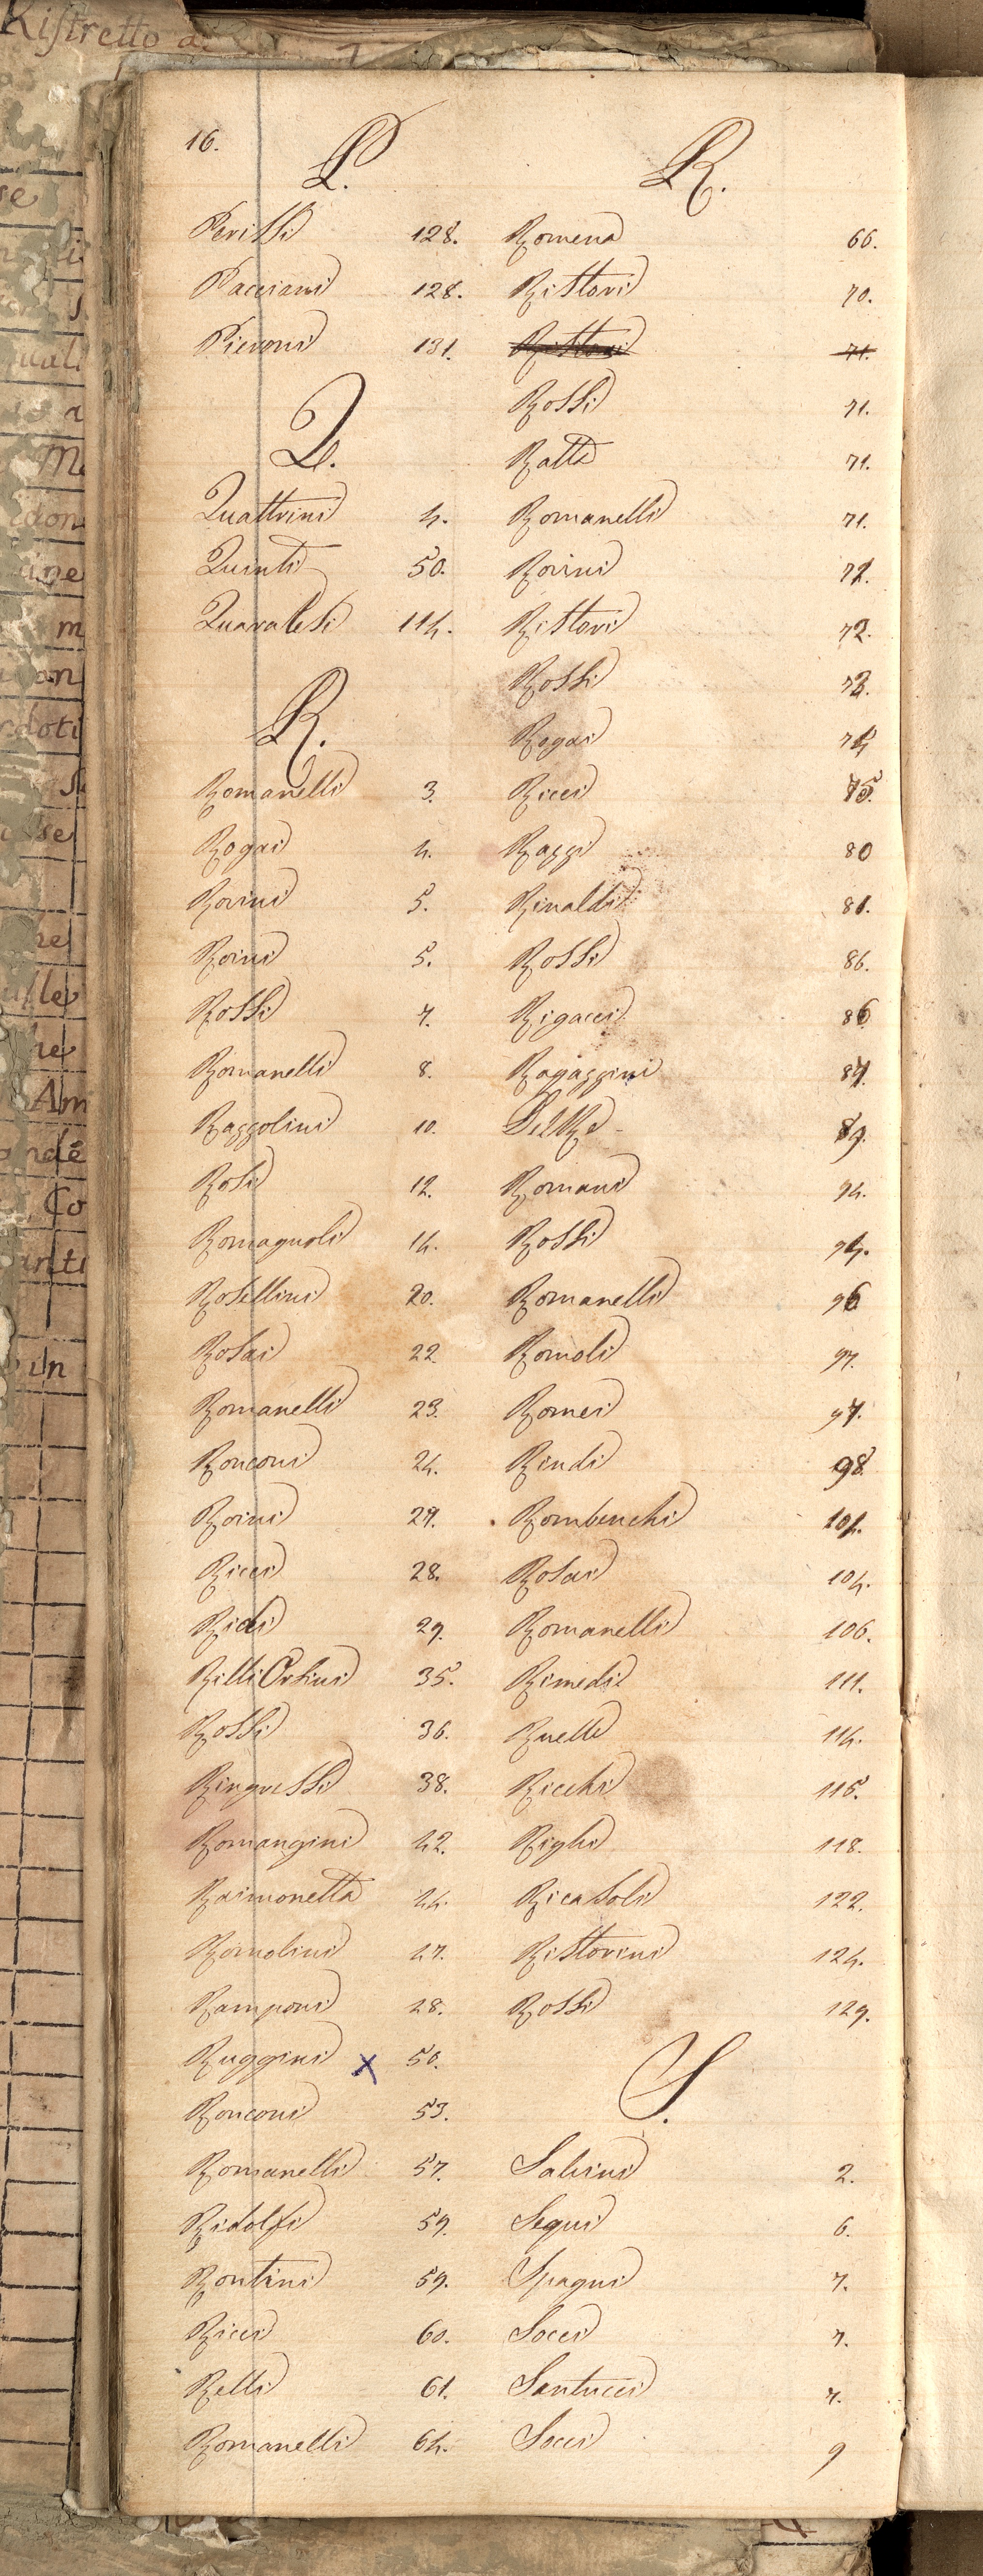 Ristretto a
16.
P.
Perissi 128.
Pacciani 128.
Pieroni 131.
Q.
Quattrini 4.
Quinti 50.
Quaratesi 114.
R.
Romanelli 3.
Rogai 4.
Rorini 5.
Roini 5.
Rossi 7.
Romanelli 8.
Razzolini 10.
Rosi 12.
Romagnoli 14.
Rosellini 20.
Rosai 22.
Romanelli 23.
Ronconi 24.
Roini 27.
Ricci 28.
Ridi 29.
Rilli Orsini 35.
Rossi 36.
Ringressi 38.
Romangini 42.
Raimonetta 44.
Romolini 47.
Ramponi 48.
Ruggini x 50.
Ronconi 53.
Romanelli 57.
Ridolfi 59.
Rontini 59.
Ricci 60.
Relli 61.
Romanelli 64.
R.
Romena 66.
Ristori 70.
Ristori 71.
Rossi 71.
Ratti 71.
Romanelli 71.
Rorini 72.
Ristori 72.
Rossi 73.
Rogai 74
Ricci 75.
Raggi 80
Rinaldi 81.
Rossi 86.
Rigacci 86
Ragazzini 87.
Del Re 89.
Romani 94.
Rossi 94.
Romanelli 96
Romoli 97.
Romei 97.
Rindi 98
Rombenchi 101.
Rosai 104.
Romanelli 106.
Rimedi 111.
Ruelle 114.
Ricchi 115.
Righi 118.
Ricasoli 122.
Ristorini 124.
Rossi 129.
S.
Salvini 2.
Segui 6.
Spagni 7.
Socci 7.
Santucci 7.
Socci 9